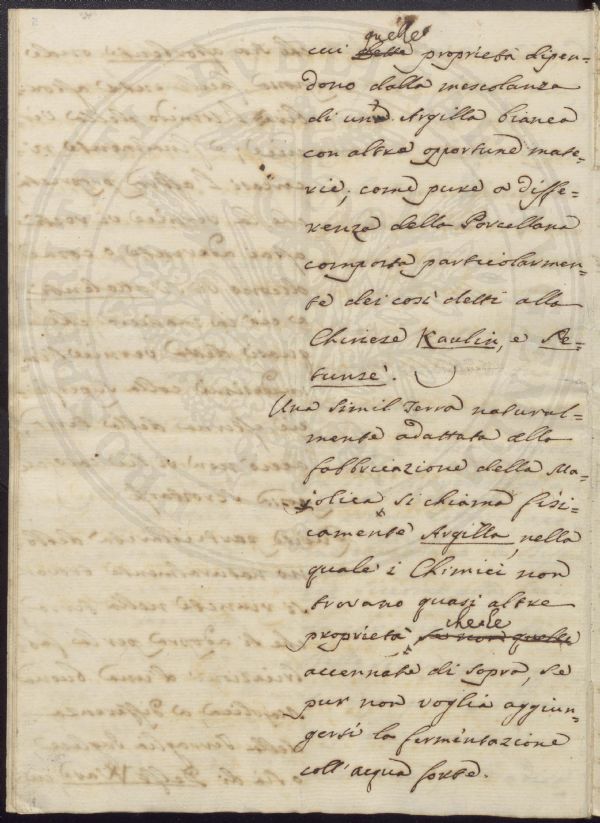 quelle
cui dette proprietà dipen=
dono dalla mescolanza
di una Argilla bianca
con altre opportune mate=
rie; come pure a diffe=
renza della Porcellana
composta particolarmen=
te dei così detti alla
Chinese Kaulin, e Pe=
tunsè.
Una simil Terra natural=
mente adattata alla
fabbricazione della Ma=
jolica si chiama fisi=
camente Argilla, nella
quale i Chimici non
trovano quasi altre
che le
proprietà se non quelle
accennate di sopra, se
pur non voglia aggiun=
gersi la fermentazione
coll'acqua forte.